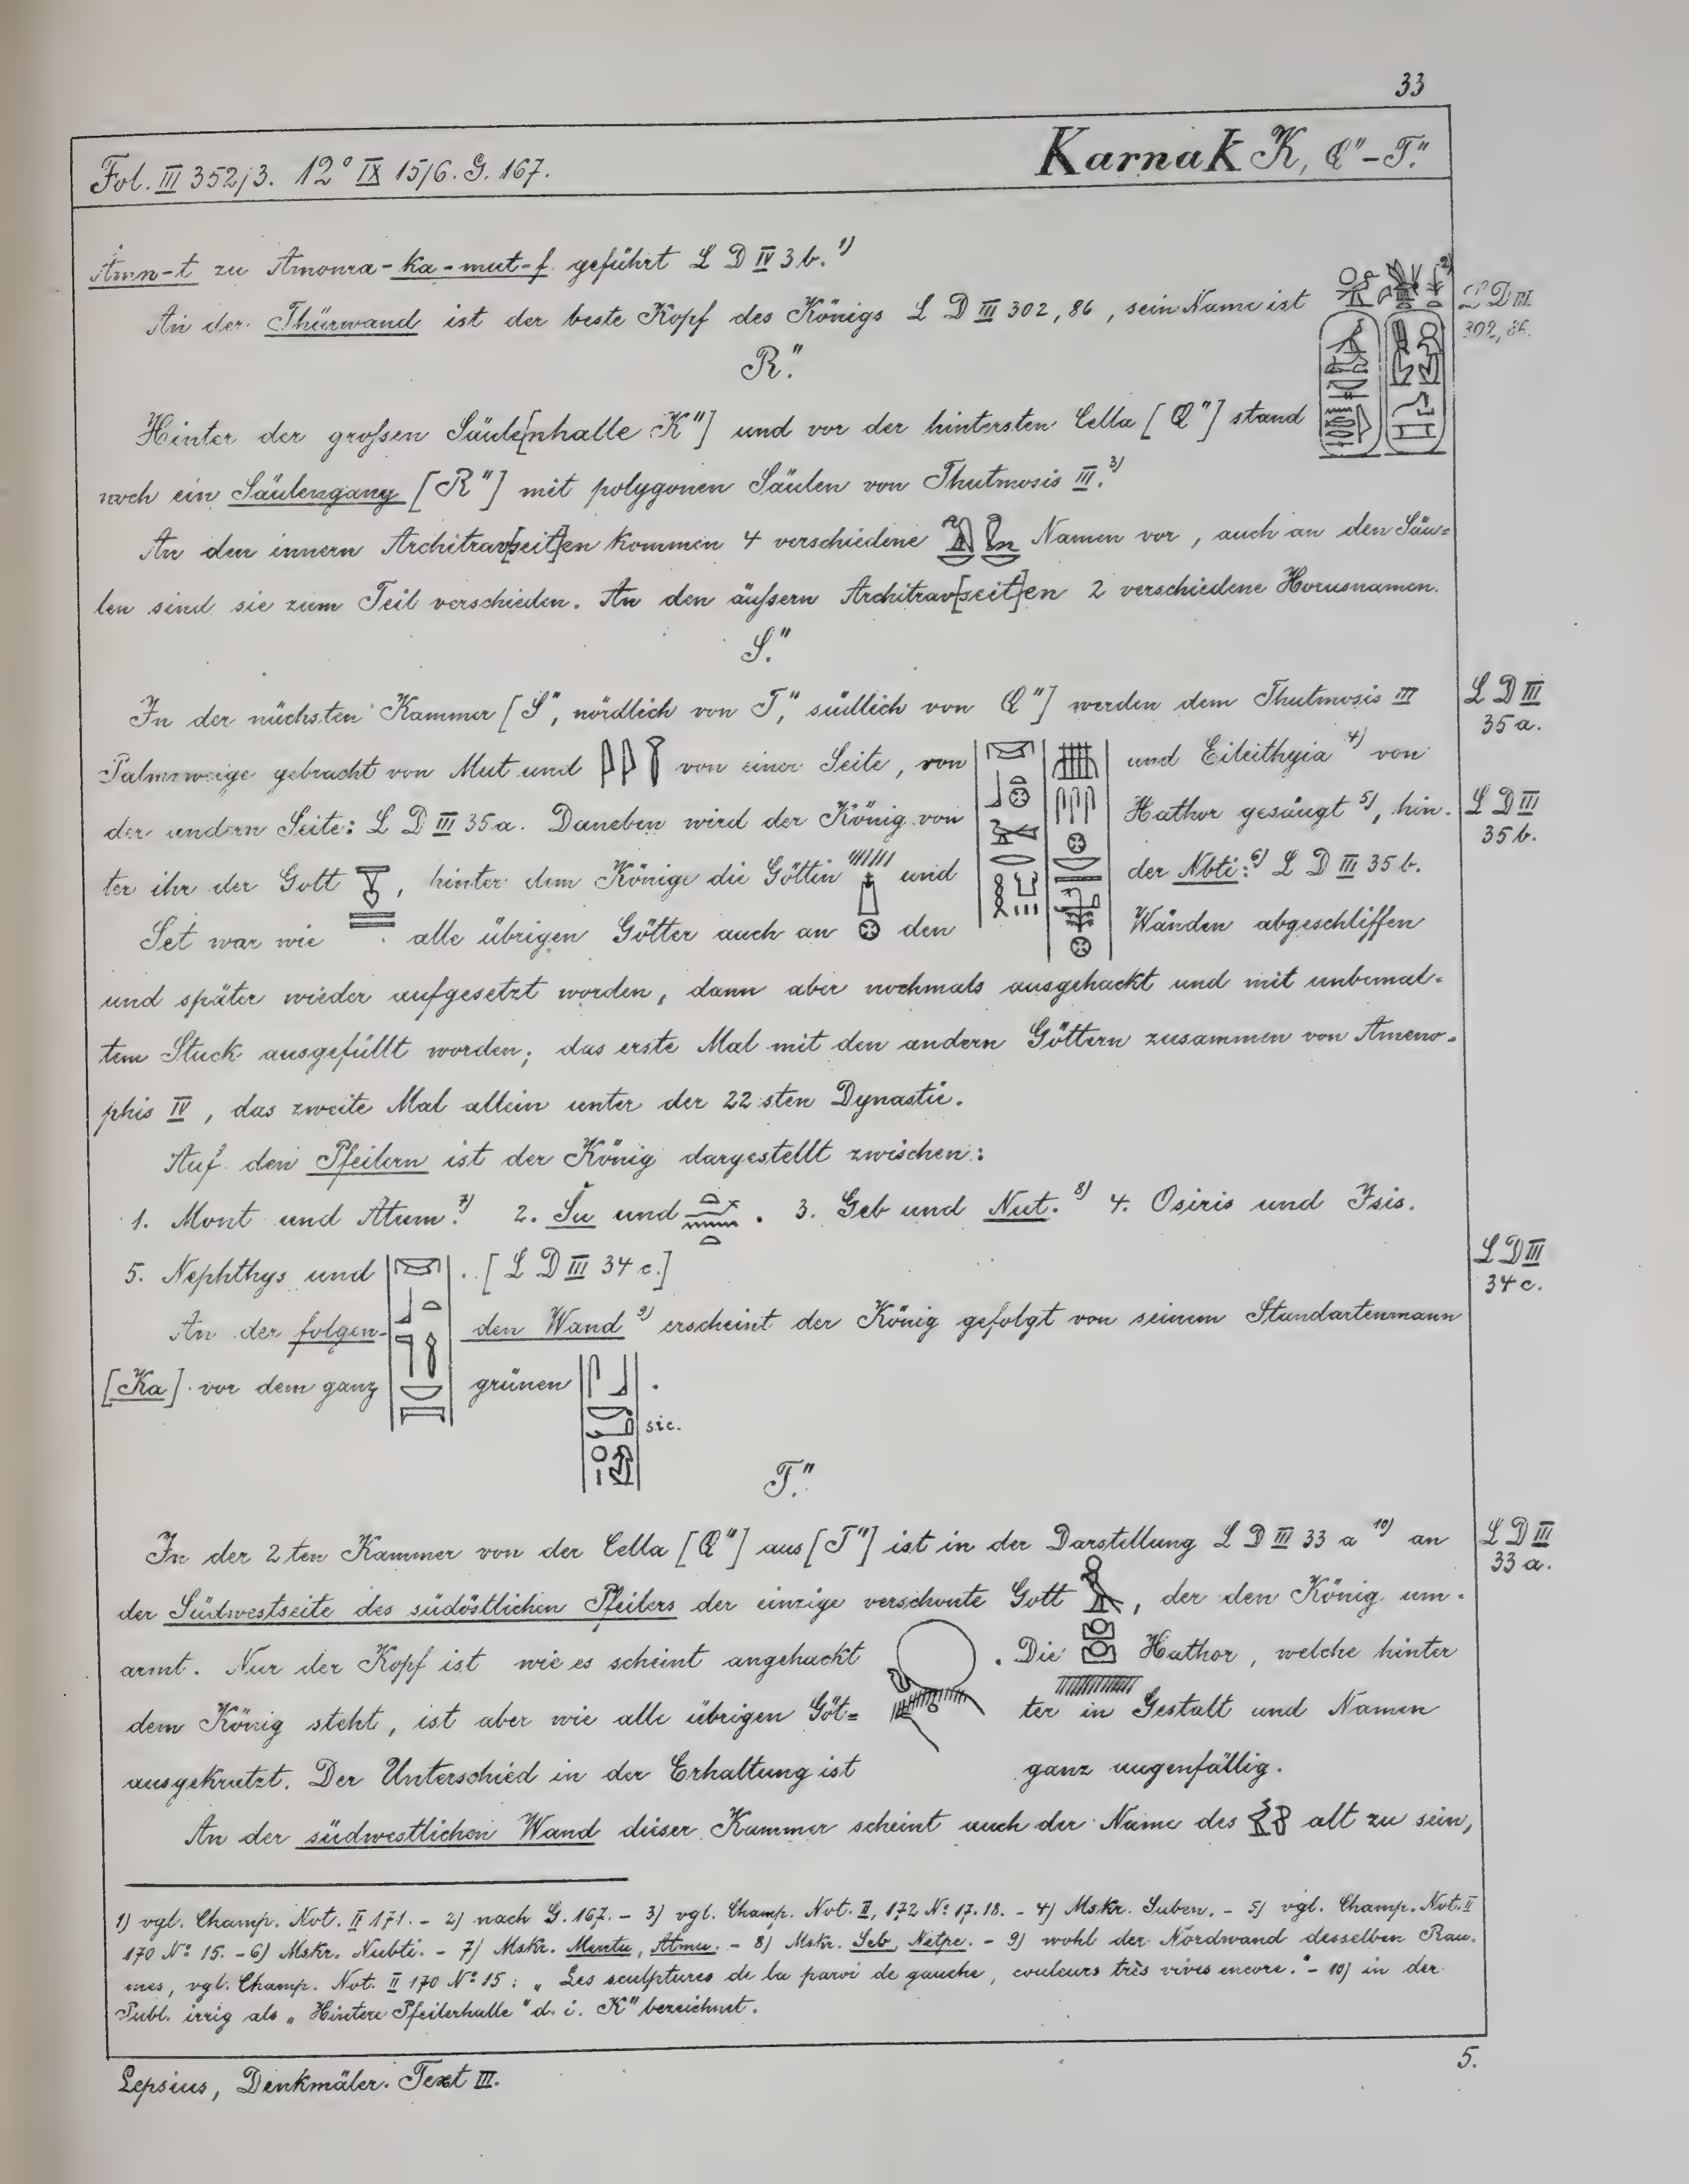 33
Fol. III 352/3. 12° IX 15/6. G. 167.
Karnak K, Q"–T."
Ȧmn-t zu Amonra-ka-mut-f geführt L D IV 3 b. 1)
An der Thürwand ist der beste Kopf des Königs L D III 302, 86, sein Name ist 2)
L D III 302, 86.
R."
Hinter der großen Säule[nhalle K"] und vor der hintersten Cella [Q"] stand
noch ein Säulengang [R"] mit polygonen Säulen von Thutmosis III. 3)
An den innern Architrav[seit]en kommen 4 verschiedene Namen vor, auch an den Säu=
len sind sie zum Teil verschieden. An den äußern Architrav[seit]en 2 verschiedene Horusnamen.
S."
In der nächsten Kammer [S", nördlich von T", südlich von Q"] werden dem Thutmosis III
L D III 35 a.
Palmzweige gebracht von Mut und von einer Seite, von und Eileithyia 4) von
der andern Seite: L D III 35 a. Daneben wird der König von Hathor gesäugt 5), hin-
L D III 35 b.
ter ihr der Gott , hinter dem Könige die Göttin und der Nbti: 6) L D III 35 b.
Set war wie alle übrigen Götter auch an den Wänden abgeschliffen
und später wieder aufgesetzt worden, dann aber nochmals ausgehackt und mit unbemal-
tem Stuck ausgefüllt worden; das erste Mal mit den andern Göttern zusammen von Ameno-
phis IV, das zweite Mal allein unter der 22sten Dynastie.
Auf den Pfeilern ist der König dargestellt zwischen:
1. Mont und Atum. 7) 2. Šu und . 3. Geb und Nut. 8) 4. Osiris und Isis.
5. Nephthys und . [L D III 34 c.]
L D III 34 c.
An der folgen- den Wand 9) erscheint der König gefolgt von seinem Standartenmann
[Ka] vor dem ganz grünen .
sic.
T."
In der 2ten Kammer von der Cella [Q"] aus [T"] ist in der Darstellung L D III 33 a 10) an
L D III 33 a.
der Südwestseite des südöstlichen Pfeilers der einzige verschonte Gott , der den König um-
armt. Nur der Kopf ist wie es scheint angehackt . Die Hathor, welche hinter
dem König steht, ist aber wie alle übrigen Göt= ter in Gestalt und Namen
ausgekratzt. Der Unterschied in der Erhaltung ist ganz augenfällig.
An der südwestlichen Wand dieser Kammer scheint auch der Name des alt zu sein,
1) vgl. Champ. Not. II 171. – 2) nach G. 167. – 3) vgl. Champ. Not. II, 172 N° 17. 18. – 4) Mskr. Suben. – 5) vgl. Champ. Not. II
170 N° 15. – 6) Mskr. Nubti. – 7) Mskr. Mentu, Atmu. – 8) Mskr. Seb, Netpe. – 9) wohl der Nordwand desselben Rau-
mes, vgl. Champ. Not. II 170 N° 15: „Les sculptures de la paroi de gauche, couleurs très vives encore." – 10) in der
Publ. irrig als „Hintere Pfeilerhalle" d. i. K" bezeichnet.
Lepsius, Denkmäler. Text III.
5.